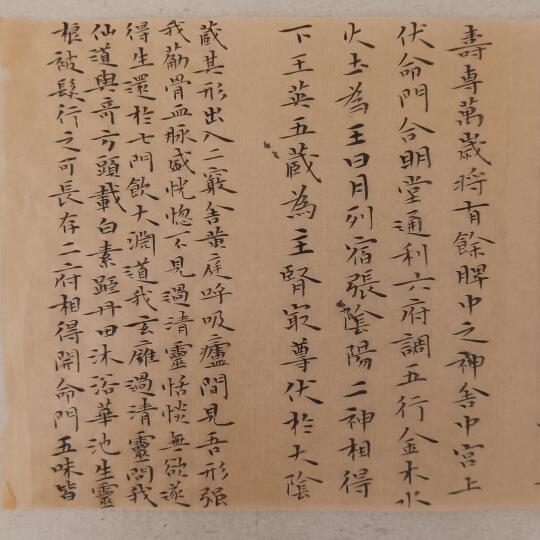 壽專萬歲將有餘脾中之神舍中宮上
伏命門合明堂通利六府調五行金木水
火土為王日月列宿張陰陽二神相得
下王英五藏為主腎最尊伏於大陰
藏其形出入二竅舍黃庭呼吸廬間見吾形强
我筋骨血脉盛恍惚不見過清靈恬惔無欲遂
得生還於七門飲大淵道我玄廱過清靈問我
仙道與奇方頭載白素距丹田沐浴華池生靈
根被髮行之可長存二府相得開命門五味皆